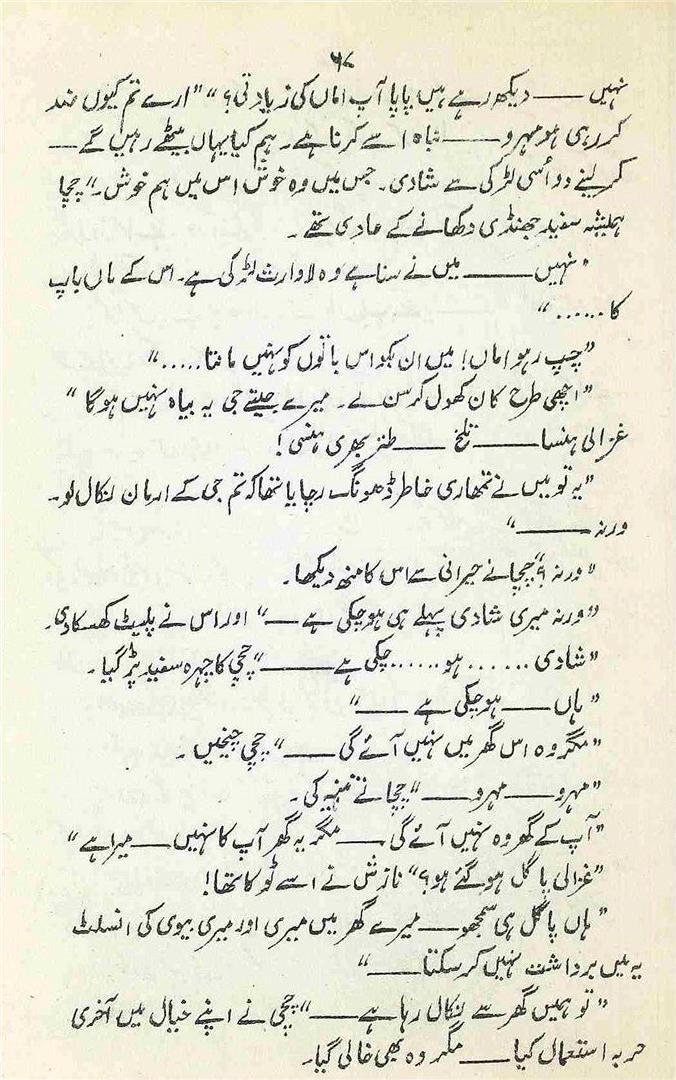 ۶۸
نہیں ــــ دیکھ رہے ہیں پاپا آپ اماں کی زیادتی؟" "ارے تم کیوں ضد
کر رہی ہو مہرو ــــ نباہ اسے کرنا ہے۔ ہم کیا یہاں بیٹھے رہیں گے ــــ
کر لینے دو اُسی لڑکی سے شادی۔ جس میں وہ خوش اس میں ہم خوش۔" چچا
ہمیشہ سفید جھنڈی دکھانے کے عادی تھے۔
"نہیں ــــ میں نے سنا ہے وہ لاوارث لڑکی ہے۔ اس کے ماں باپ
کا ......"
"چپ رہو اماں! میں ان بکواس باتوں کو نہیں مانتا ....."
"اچھی طرح کان کھول کر سن لے۔ میرے جیتے جی یہ بیاہ نہیں ہوگا"
غزالی ہنسا ــــ تلخ ــــ طنز بھری ہنسی!
"یہ تو میں نے تمھاری خاطر ڈھونگ رچایا تھا کہ تم جی کے ارمان نکال لو۔
ورنہ ــــ"
"ورنہ؟" چچا نے حیرانی سے اس کا منھ دیکھا۔
"ورنہ میری شادی پہلے ہی ہو چکی ہے ــــ" اور اس نے پلیٹ کھسکا دی۔
"شادی ...... ہو ...... چکی ہے ــــ" چچی کا چہرہ سفید پڑ گیا۔
"ہاں ــــ ہو چکی ہے ــــ"
"مگر وہ اس گھر میں نہیں آئے گی ــــ" چچی چیخیں۔
"مہرو ــــ مہرو ــــ" چچا نے تنبیہ کی۔
"آپ کے گھر وہ نہیں آئے گی ــــ مگر یہ گھر آپ کا نہیں ــــ میرا ہے"
"غزالی پاگل ہو گئے ہو؟" نازش نے اسے ٹوکا تھا!
"ہاں پاگل ہی سمجھو ــــ میرے گھر میں میری اور میری بیوی کی انسلٹ
یہ میں برداشت نہیں کر سکتا ــــ"
"تو ہمیں گھر سے نکال رہا ہے ــــ" چچی نے اپنے خیال میں آخری
حربہ استعمال کیا ــــ مگر وہ بھی خالی گیا۔